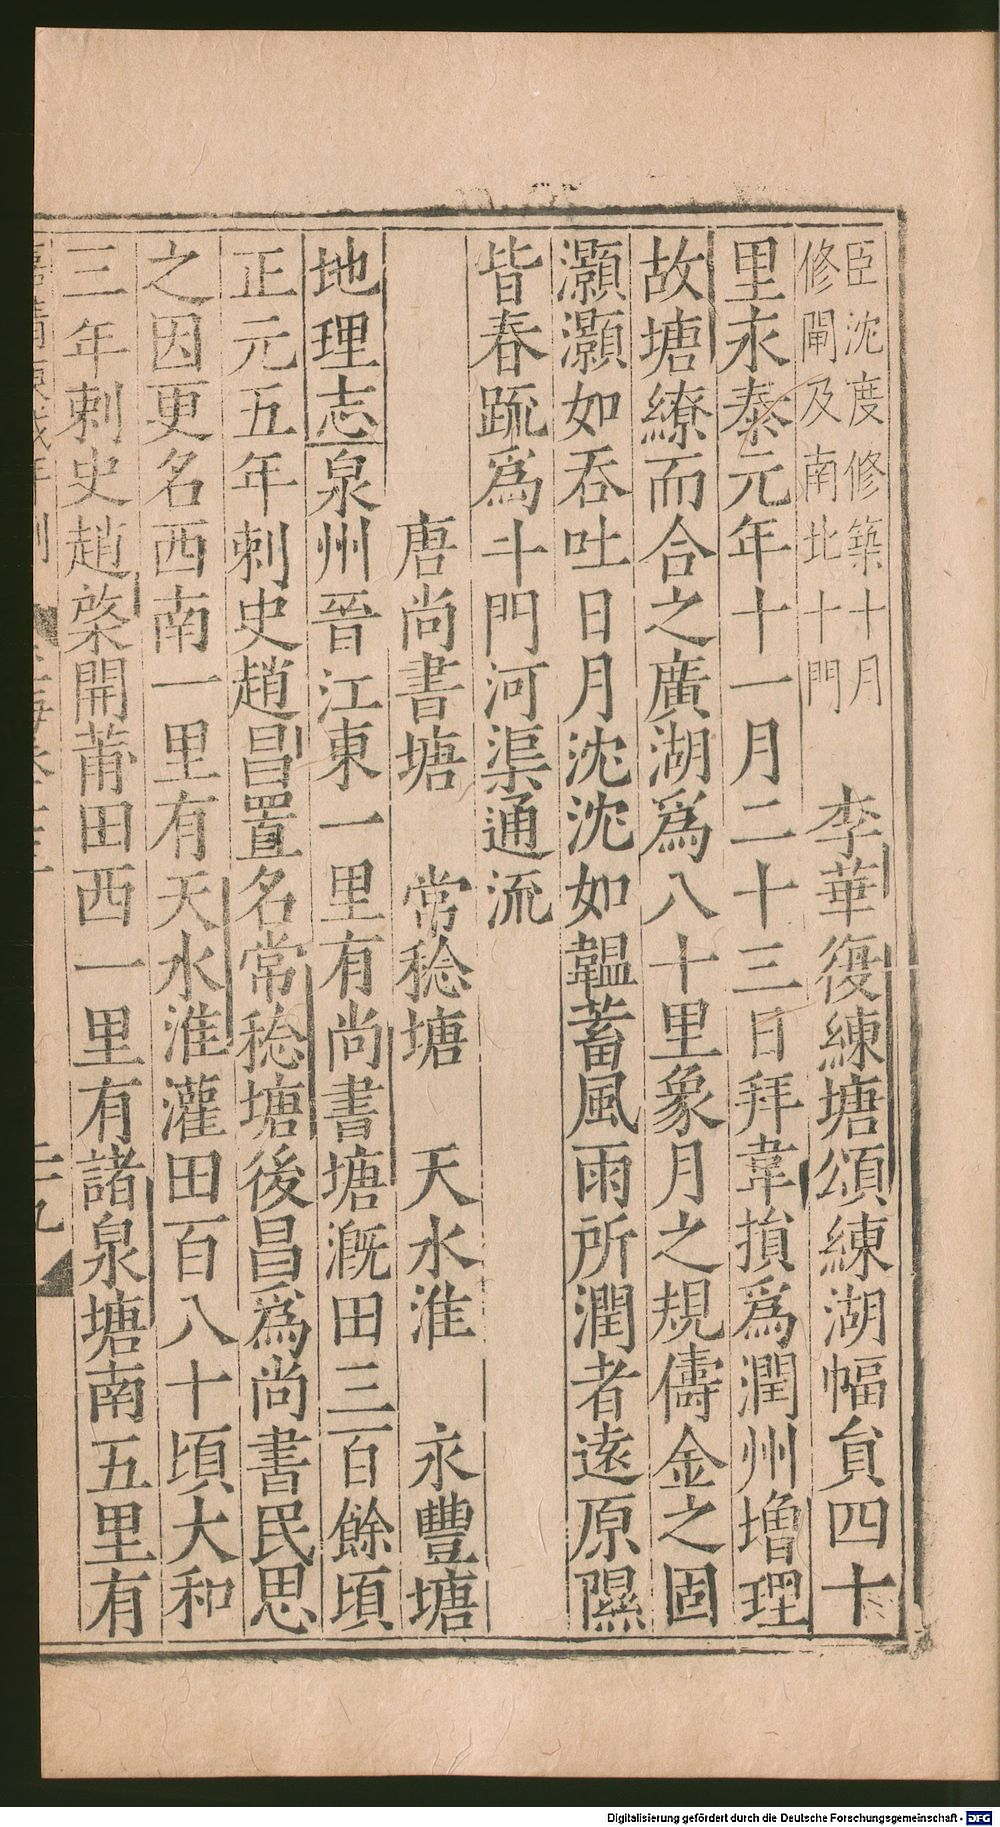 臣沈度修築十月
修閘及南北十門
李華復練塘頌練湖幅貟四十
里永泰元年十一月二十三日拜韋損爲潤州增理
故塘繚而合之廣湖爲八十里象月之規儔金之固
灝灝如吞吐日月沈沈如韞蓄風雨所潤者遠原隰
皆春䟽爲斗門河渠通流
唐尚書塘　常稔塘　天水淮　永豐塘
地理志泉州晉江東一里有尚書塘漑田三百餘頃
正元五年刺史趙昌置名常稔塘後昌爲尚書民思
之因更名西南一里有天水淮灌田百八十頃大和
三年刺史趙棨開莆田西一里有諸泉塘南五里有
二九
Digitalisierung gefördert durch die Deutsche Forschungsgemeinschaft - DFG